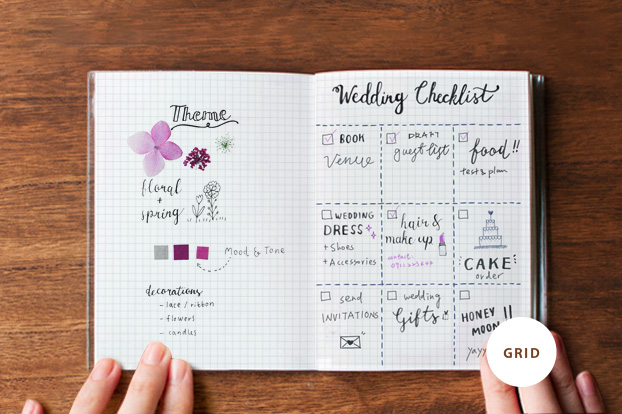 Theme
floral
+
spring
Mood & Tone
decorations
- lace / ribbon
- flowers
- candles
Wedding Checklist
BOOK
Venue
DRAFT
guest list
food!!
test & plan
WEDDING
DRESS
+ Shoes
+ Accessories
hair &
make up
contact
CAKE
order
send
INVITATIONS
wedding
Gifts
HONEY
MOON!!
yayy
GRID